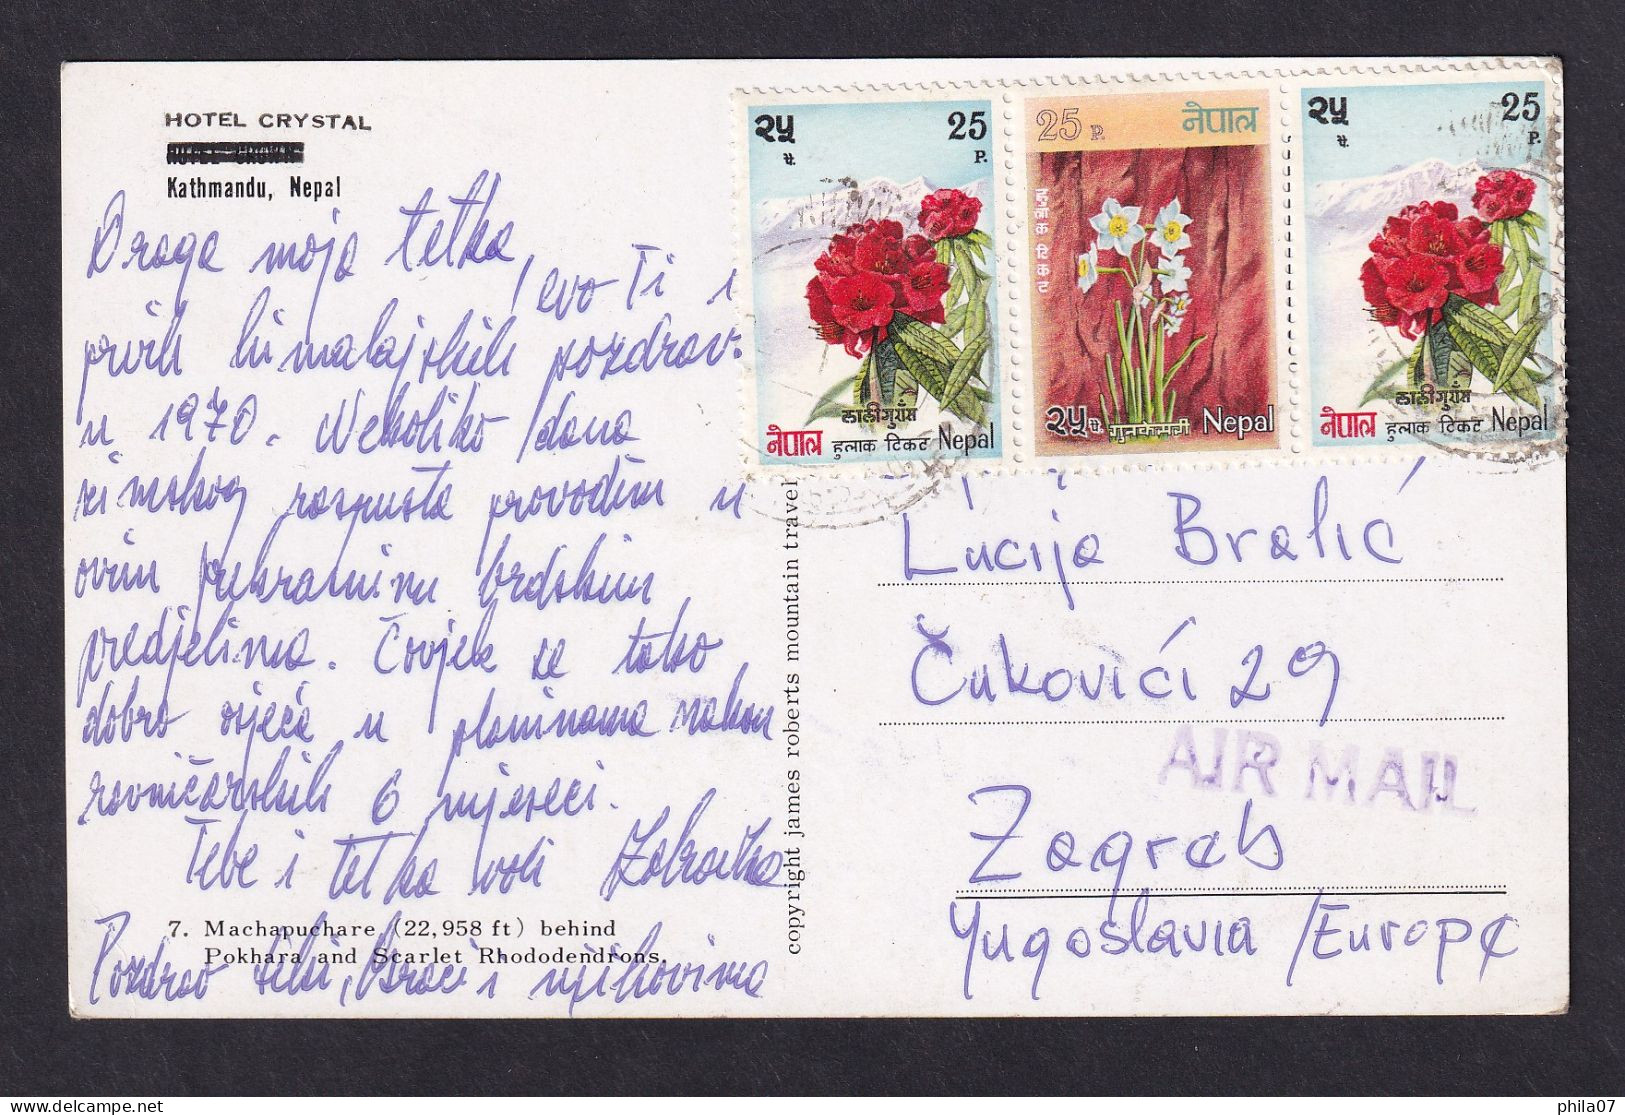 HOTEL CRYSTAL
Kathmandu, Nepal
Draga moja tetka,
evo Ti i
prvih himalajskih pozdrav.
u 1970. Nekoliko dana
zimskog raspusta provodim u
ovim prekrasnim brdskim
predjelima. Čovjek se tako
dobro osjeća u planinama nakon
ravničarskih 6 mjeseci.
Tebe i tetka voli
7. Machapuchare (22,958 ft) behind
Pokhara and Scarlet Rhododendrons.
Pozdrav tebi, braći i njihovima
copyright james roberts mountain travel
२५ पै. 25 P.
लालीगुराँस
नेपाल हुलाक टिकट Nepal
25 P. नेपाल
२५ पै. गुनकेसरी Nepal
२५ पै. 25 P.
लालीगुराँस
नेपाल हुलाक टिकट Nepal
Lucija Bralić
Čukovići 29
AIR MAIL
Zagreb
Yugoslavia /Europe
phila07